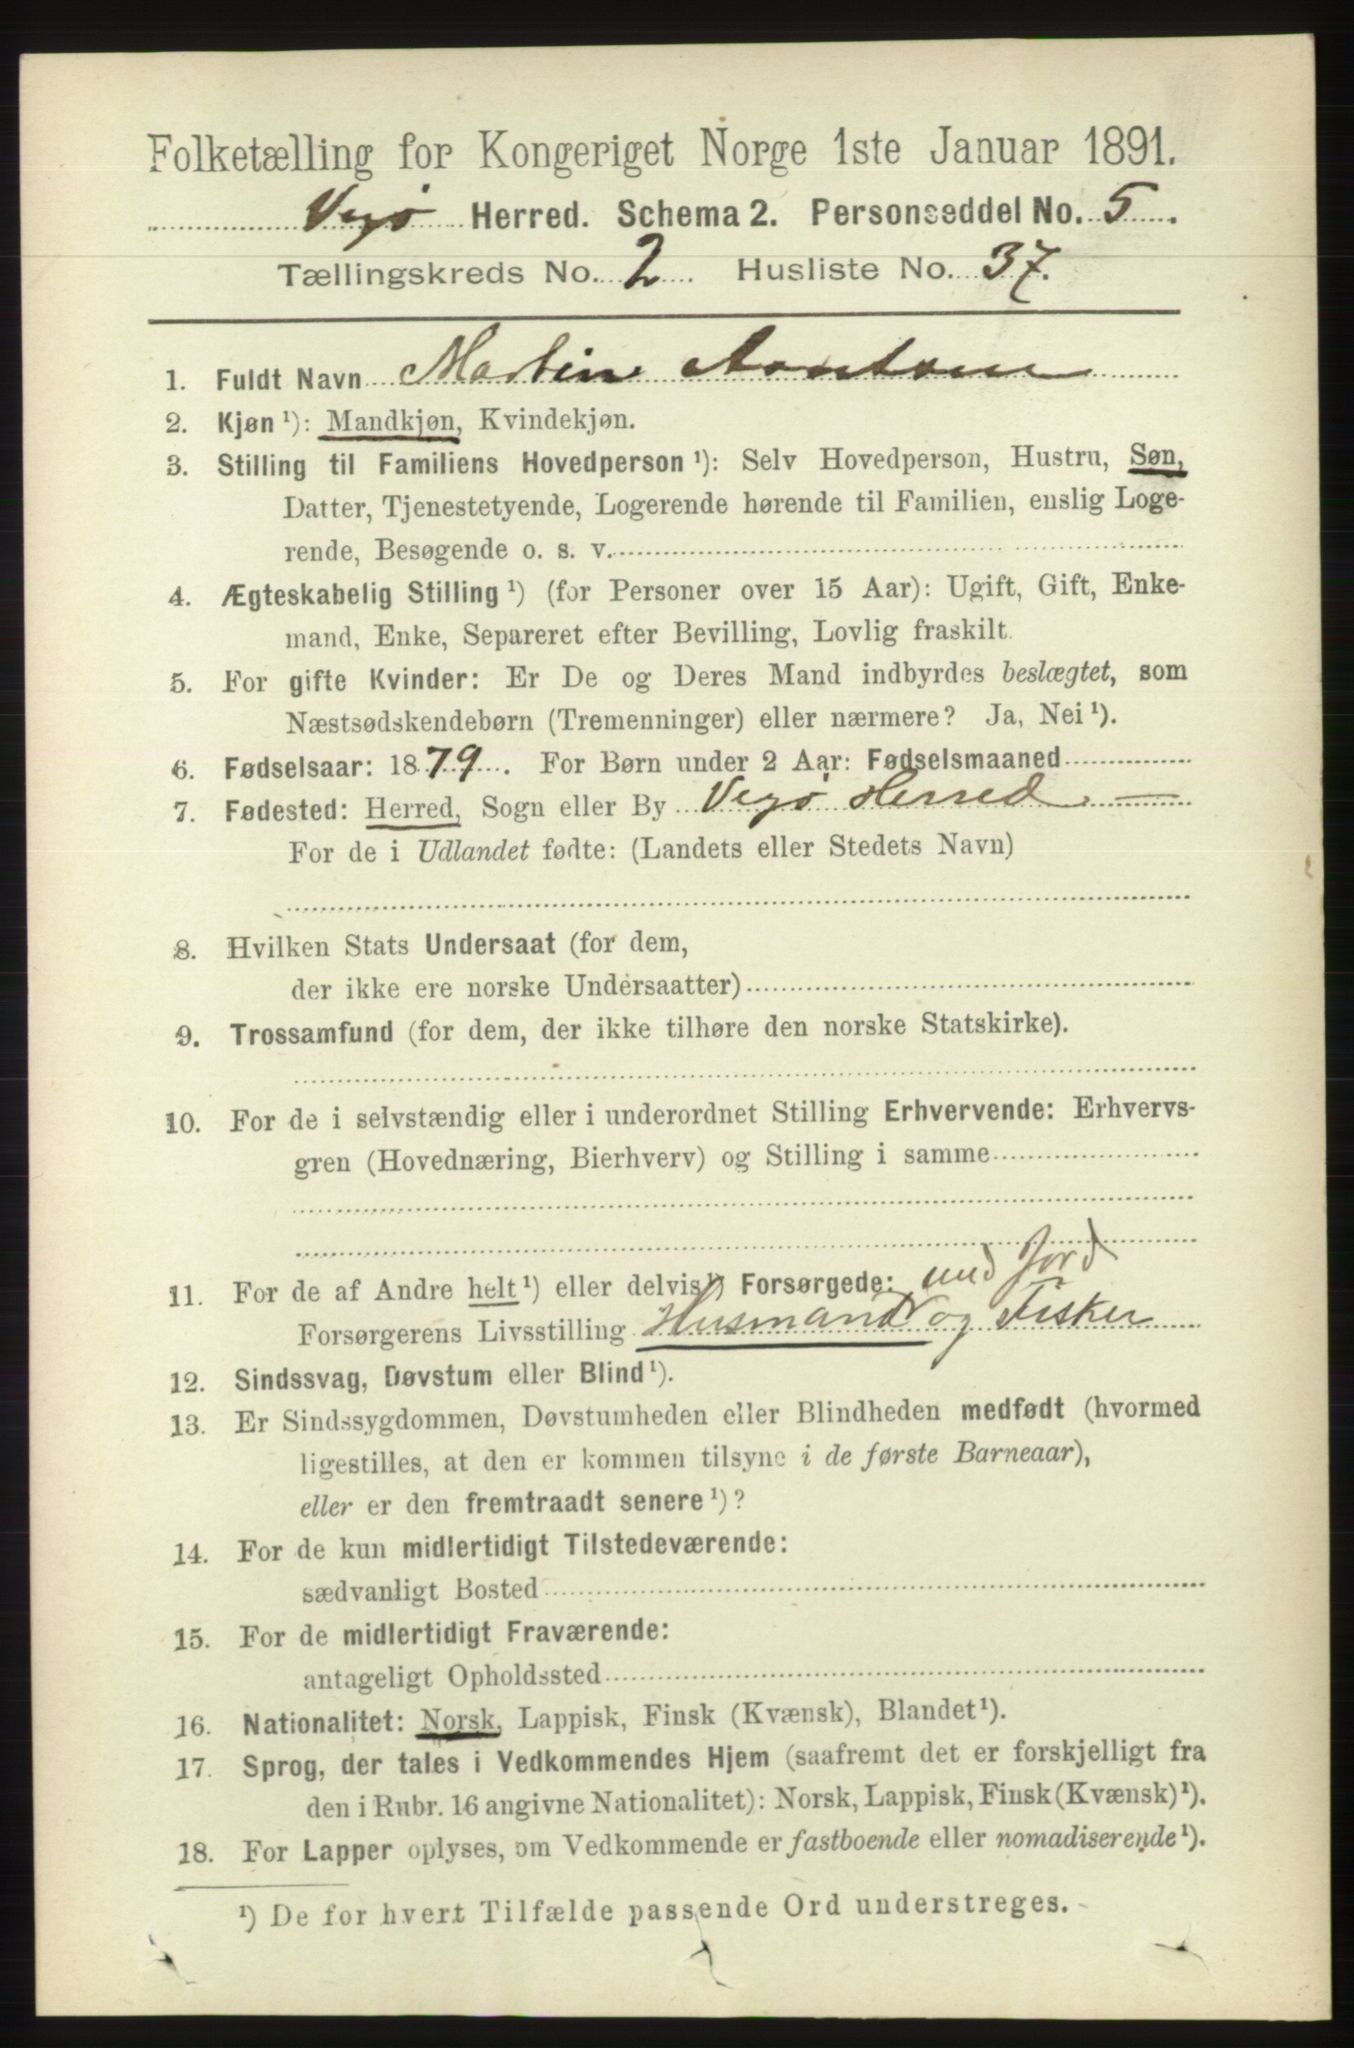 Folketælling for Kongeriget Norge 1ste Januar 1891.
Vegø Herred. Schema 2. Personseddel No. 5.
Tællingskreds No. 2 Husliste No. 37.
1. Fuldt Navn Martin
2. Kjøn ¹): Mandkjøn, Kvindekjøn.
3. Stilling til Familiens Hovedperson ¹): Selv Hovedperson, Hustru, Søn,
Datter, Tjenestetyende, Logerende hørende til Familien, enslig Loge-
rende, Besøgende o. s. v.
4. Ægteskabelig Stilling ¹) (for Personer over 15 Aar): Ugift, Gift, Enke-
mand, Enke, Separeret efter Bevilling, Lovlig fraskilt.
5. For gifte Kvinder: Er De og Deres Mand indbyrdes beslægtet, som
Næstsødskendebørn (Tremenninger) eller nærmere? Ja, Nei ¹).
6. Fødselsaar: 1879. For Børn under 2 Aar: Fødselsmaaned
7. Fødested: Herred, Sogn eller By Vegø Herred —
For de i Udlandet fødte: (Landets eller Stedets Navn)
8. Hvilken Stats Undersaat (for dem,
der ikke ere norske Undersaatter)
9. Trossamfund (for dem, der ikke tilhøre den norske Statskirke).
10. For de i selvstændig eller i underordnet Stilling Erhvervende: Erhvervs-
gren (Hovednæring, Bierhverv) og Stilling i samme
11. For de af Andre helt ¹) eller delvis ¹) Forsørgede: med Jord
Forsørgerens Livsstilling Husmand og Fisker
12. Sindssvag, Døvstum eller Blind ¹).
13. Er Sindssygdommen, Døvstumheden eller Blindheden medfødt (hvormed
ligestilles, at den er kommen tilsyne i de første Barneaar),
eller er den fremtraadt senere ¹)?
14. For de kun midlertidigt Tilstedeværende:
sædvanligt Bosted
15. For de midlertidigt Fraværende:
antageligt Opholdssted
16. Nationalitet: Norsk, Lappisk, Finsk (Kvænsk), Blandet ¹).
17. Sprog, der tales i Vedkommendes Hjem (saafremt det er forskjelligt fra
den i Rubr. 16 angivne Nationalitet): Norsk, Lappisk, Finsk (Kvænsk) ¹).
18. For Lapper oplyses, om Vedkommende er fastboende eller nomadiserende ¹).
¹) De for hvert Tilfælde passende Ord understreges.